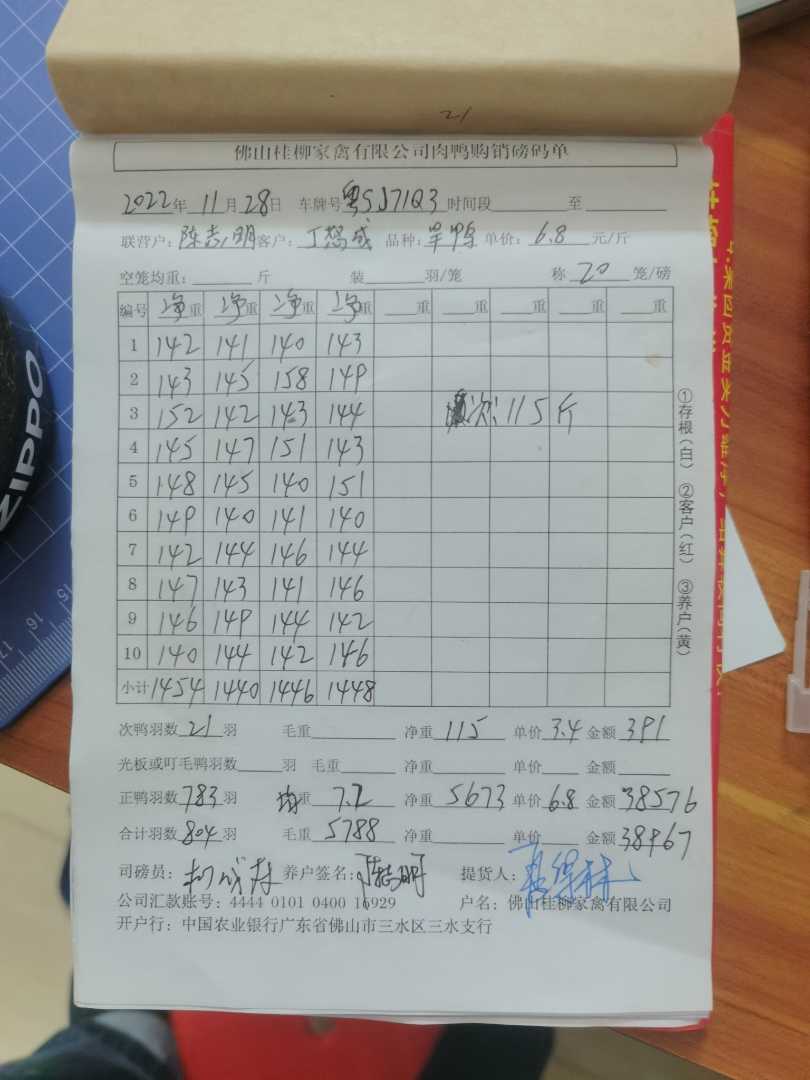 21
佛山桂柳家禽有限公司肉鸭购销磅码单
2022年 11月 28日 车牌号粤SJ71Q3 时间段 至
联营户：陈志明 客户：丁 成 品种： 鸭 单价：6.8 元/斤
空笼均重： 斤 装 羽/笼 称 20 笼/磅
编号 净重 净重 净重 净重 重 重 重 重 重
1 142 141 140 143
2 143 145 158 149
3 152 142 143 144 次：115斤
4 145 147 151 143
5 148 145 140 151
6 149 140 141 140
7 142 144 146 144
8 147 143 141 146
9 146 149 144 142
10 140 144 142 146
小计 1454 1440 1446 1448
次鸭羽数 21 羽 毛重 净重 115 单价 3.4 金额 391
光板或叮毛鸭羽数 羽 毛重 净重 单价 金额
正鸭羽数 783 羽 均重 7.2 净重 5673 单价 6.8 金额 38576
合计羽数 804 羽 毛重 5788 净重 单价 金额 38967
司磅员： 养户签名：陈志明 提货人：
公司汇款账号：4444 0101 0400 16929 户名：佛山桂柳家禽有限公司
开户行：中国农业银行广东省佛山市三水区三水支行
①存根（白） ②客户（红） ③养户（黄）
ZIPPO
15
16
17